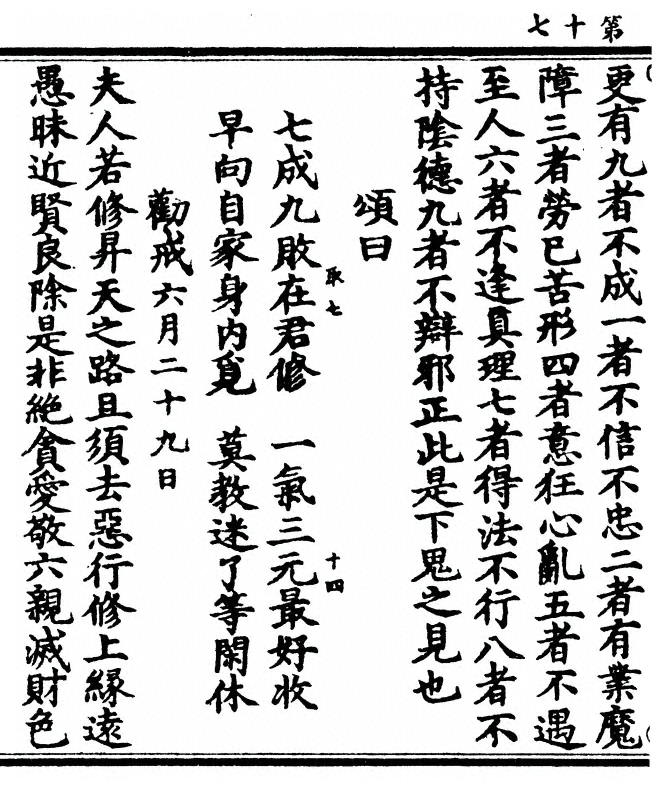 第十七
更有九者不成一者不信不忠二者有業魔
障三者勞已苦形四者意狂心亂五者不遇
至人六者不逢真理七者得法不行八者不
持陰德九者不辯邪正此是下鬼之見也
頌曰
七成九敗在君修　一氣三元最好收
取七　十四
早向自家身内覓　莫教迷了等閑休
勸戒六月二十九日
夫人若修昇天之路且須去惡行修上緣遠
愚昧近賢良除是非絶貪愛敬六親滅財色